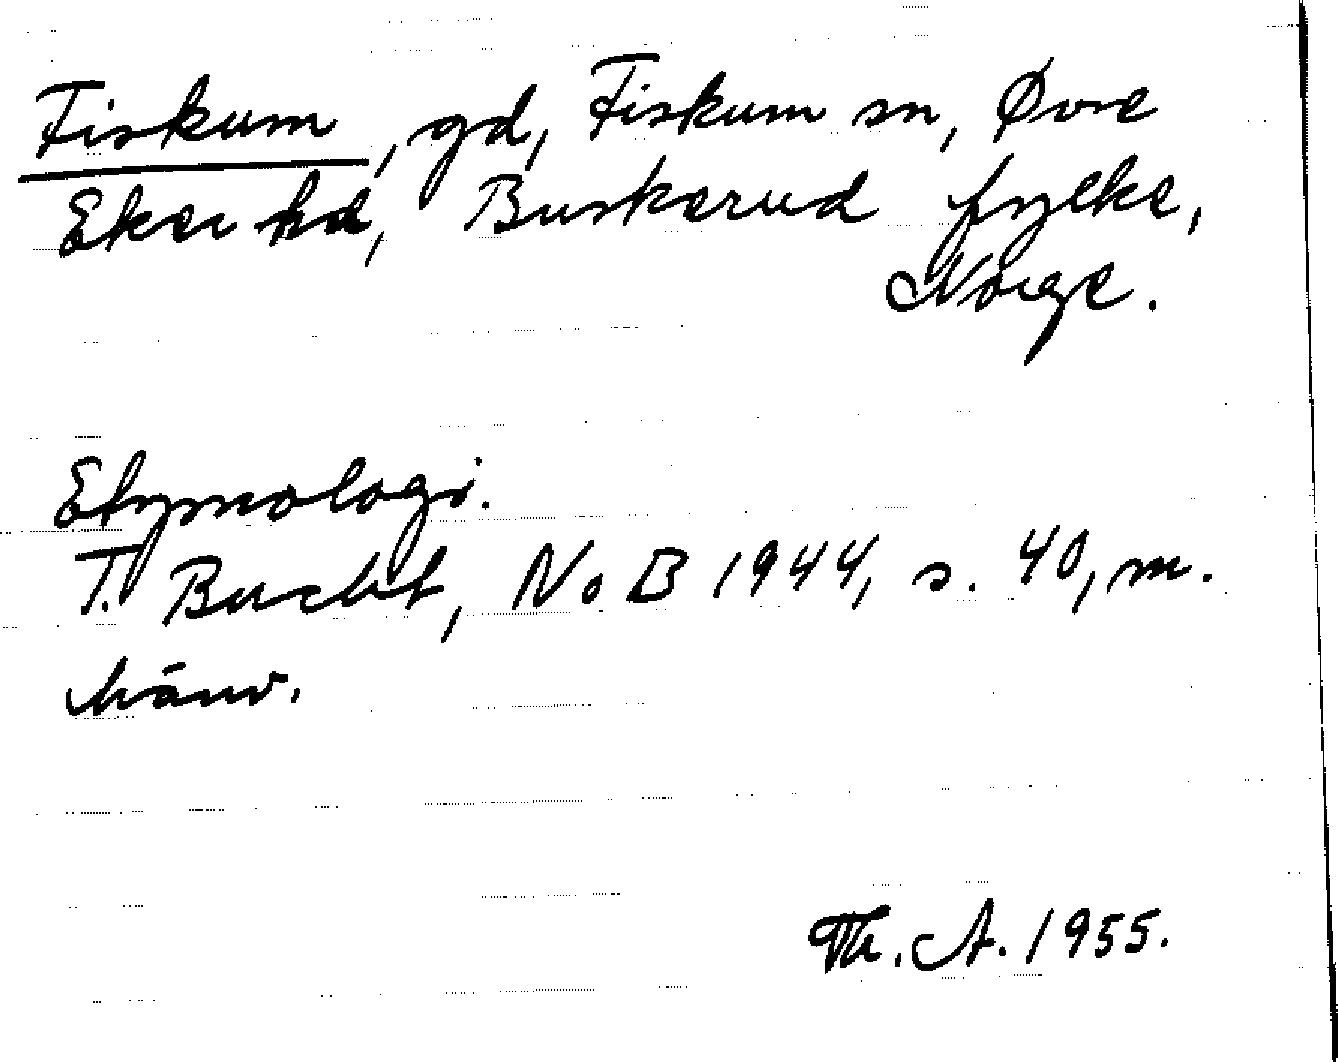 Fiskum, gd, Fiskum sn, Øvre
Eker hd, Buskerud fylke,
Norge.
Etymologi.
T. Bucht, NoB 1944, s. 40, m.
hänv.
Th. A. 1955.